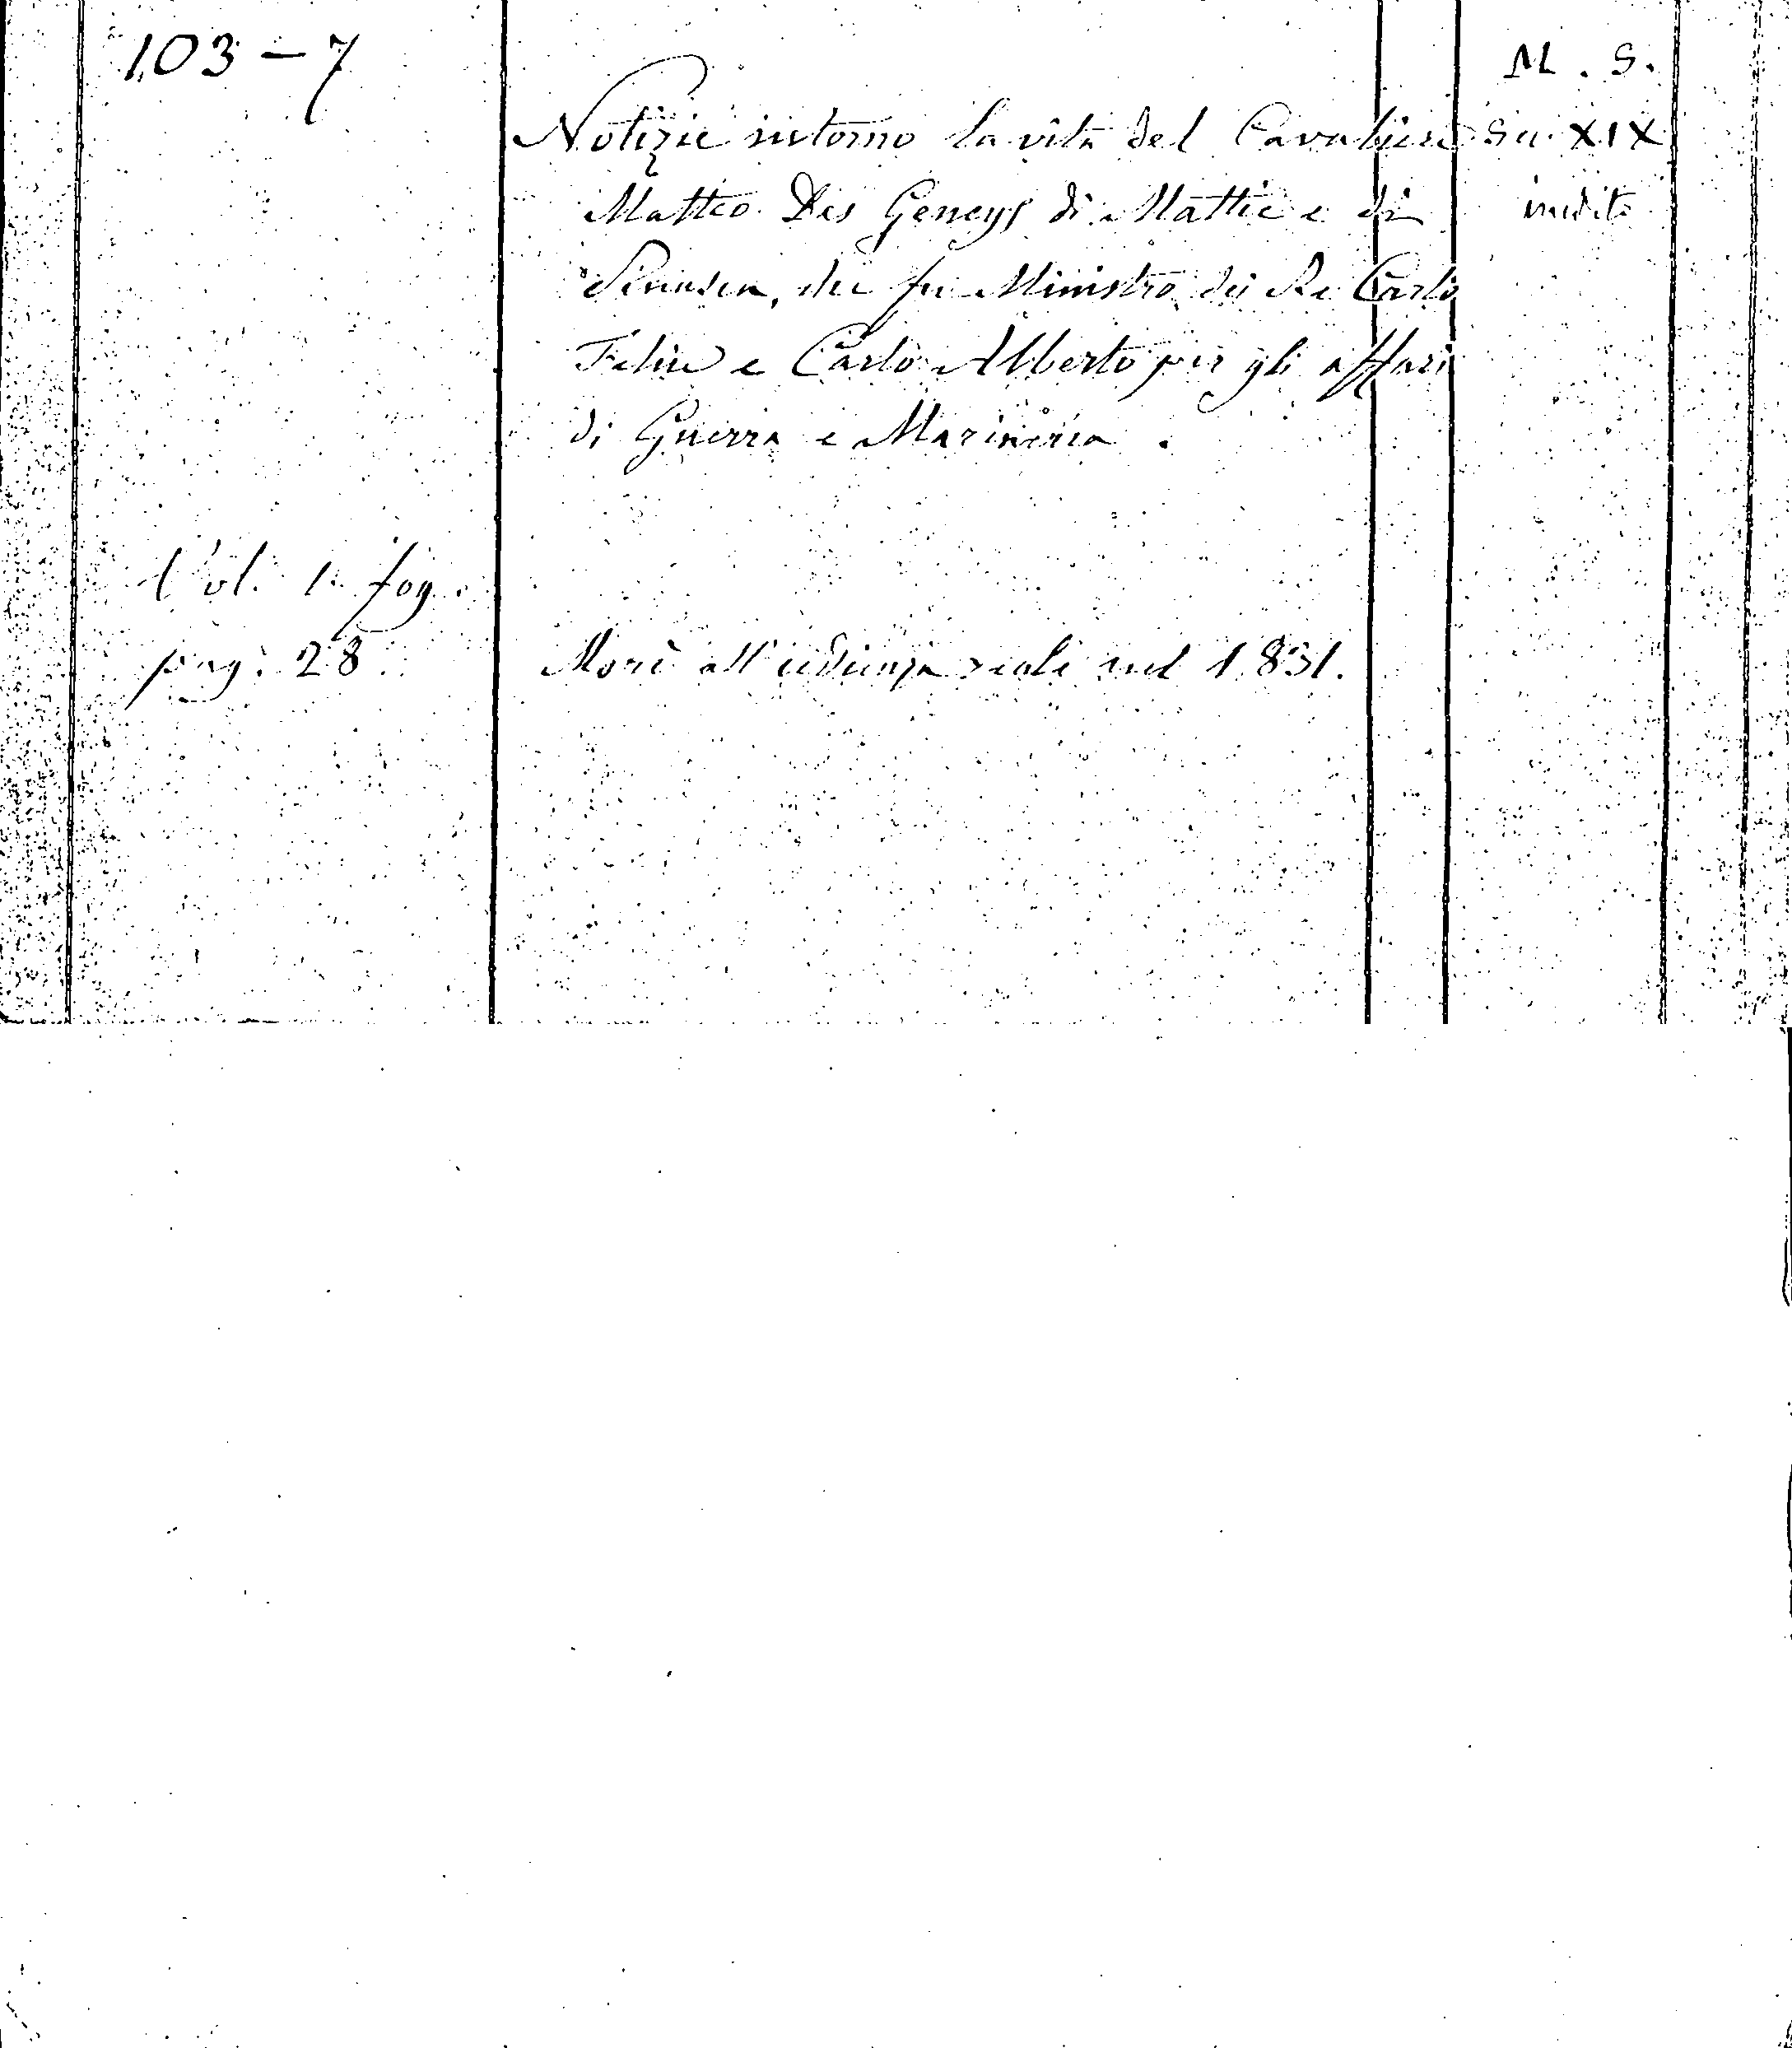 103 – 7
M. S.
Notizie intorno la vita del Cavaliere Sec. XIX
Matteo Des Geneys di Mattie e di inedito
Pinasca, che fu Ministro dei Re Carlo
Felice e Carlo Alberto per gli affari
di Guerra e Marineria.
Vol. 1. fog.
pag. 28 Morì all'udienza reale nel 1831.